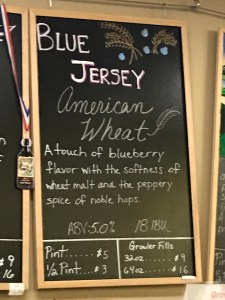 BLUE
JERSEY
American
Wheat
A touch of blueberry
flavor with the softness of
wheat malt and the peppery
spice of noble hops.
ABV:5.0% 18 IBU
Pint — $5
½ Pint — $3
Growler Fills
32oz — $9
64oz — $16
9
16